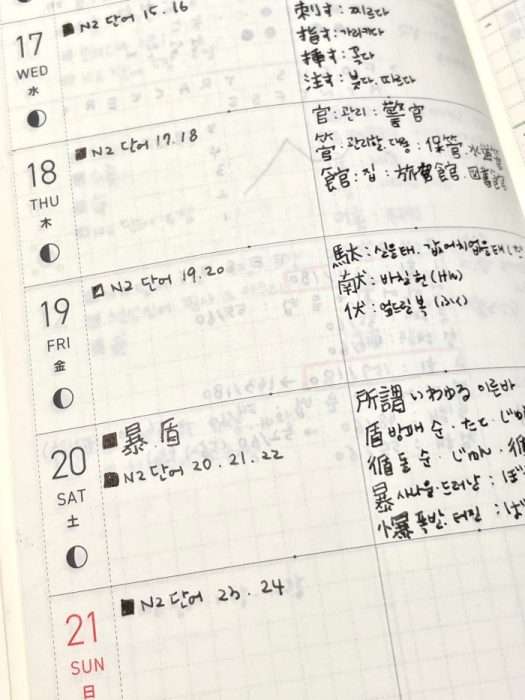 17
WED
水
N2 단어 15. 16
刺す : 찌르다
指す : 가리키다
挿す : 꽂다
注す : 붓다. 따르다
18
THU
木
N2 단어 17. 18
官 : 관리 : 警官
管 : 관리함. 대롱 : 保管
食官 : 집 : 旅館
19
FRI
金
N2 단어 19. 20
駄 : 실을태. 값어치없을태
献 : 바칠 헌 (けん)
伏 : 엎드릴 복 (ふく)
20
SAT
土
暴 盾
N2 단어 20. 21. 22
所謂 いわゆる 이른바
盾 방패 순 · たて ·
循 돌 순 · じゅん ·
暴 사나울 · 드러남 :
爆 폭발. 터질 :
21
SUN
日
N2 단어 23. 24